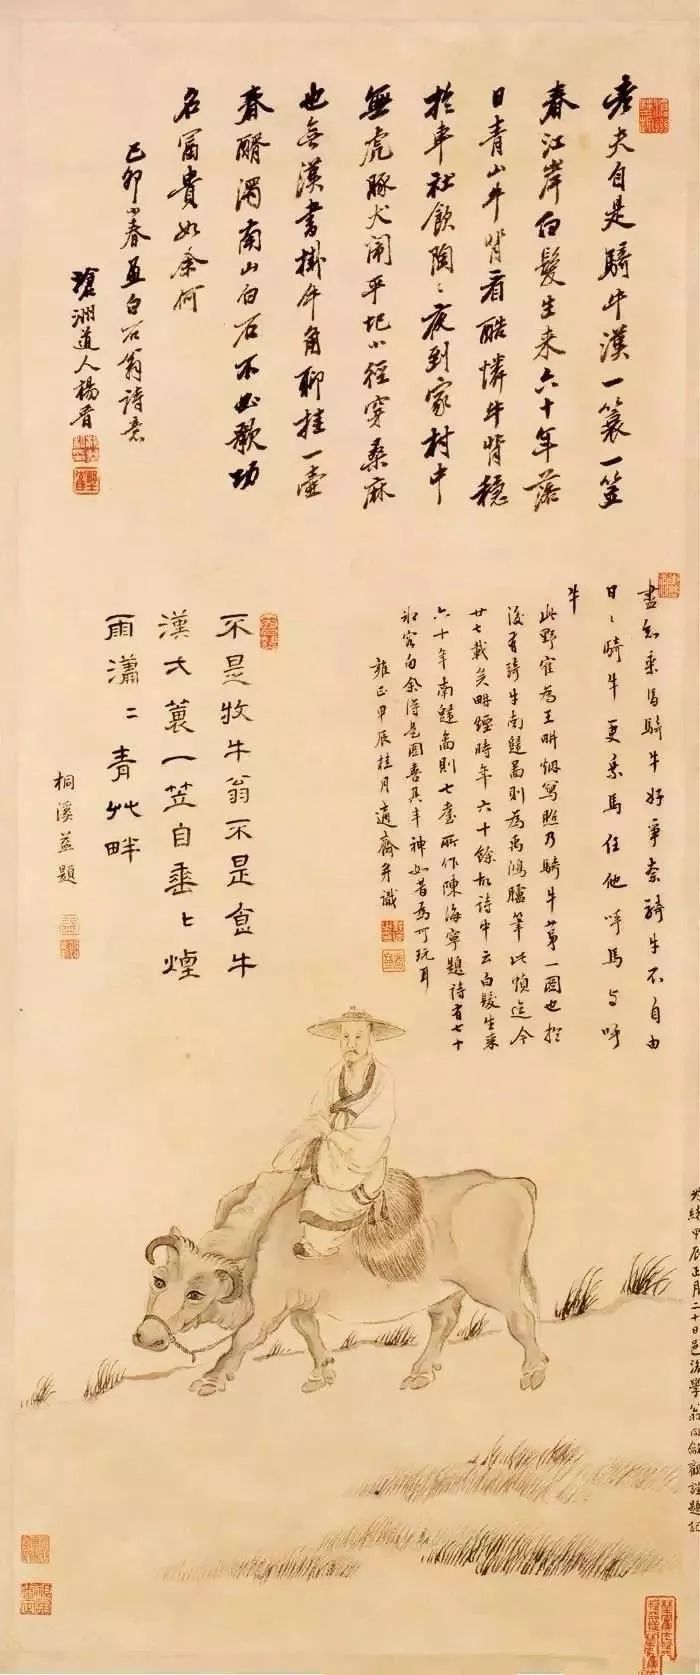 老夫自是騎牛漢一蓑一笠
春江岸白髮生来六十年落
日青山牛背看酷憐牛背穩
於車社飲陶〻夜到家村中
無虎豚犬鬧平圯小徑穿桑麻
也無漢書掛牛角聊挂一壺
春醑濁南山白石不必歌功
名富貴如余何
己卯小春畫白石翁詩意
瑲洲道人楊晋
盡知乘馬騎牛好爭奈騎牛不自由
日〻騎牛更乘馬任他呼馬與呼
牛
此野崔為王畊烟寫照乃騎牛第一圖也於
後有騎牛南還啚則為禹鴻臚筆此幀迄今
廿七載矣畊煙時年六十餘故詩中云白髮生来
六十年南還啚則七
作陳海寧題詩有七十
余得是圖喜其丰神如昔為可玩耳
雍正甲辰桂月適齋并識
不是牧牛翁不是飯牛
漢大蓑一笠自垂〻煙
雨瀟〻青艸畔
桐溪益題
光緒甲辰正月二十日邑後學翁同龢觀謹題記